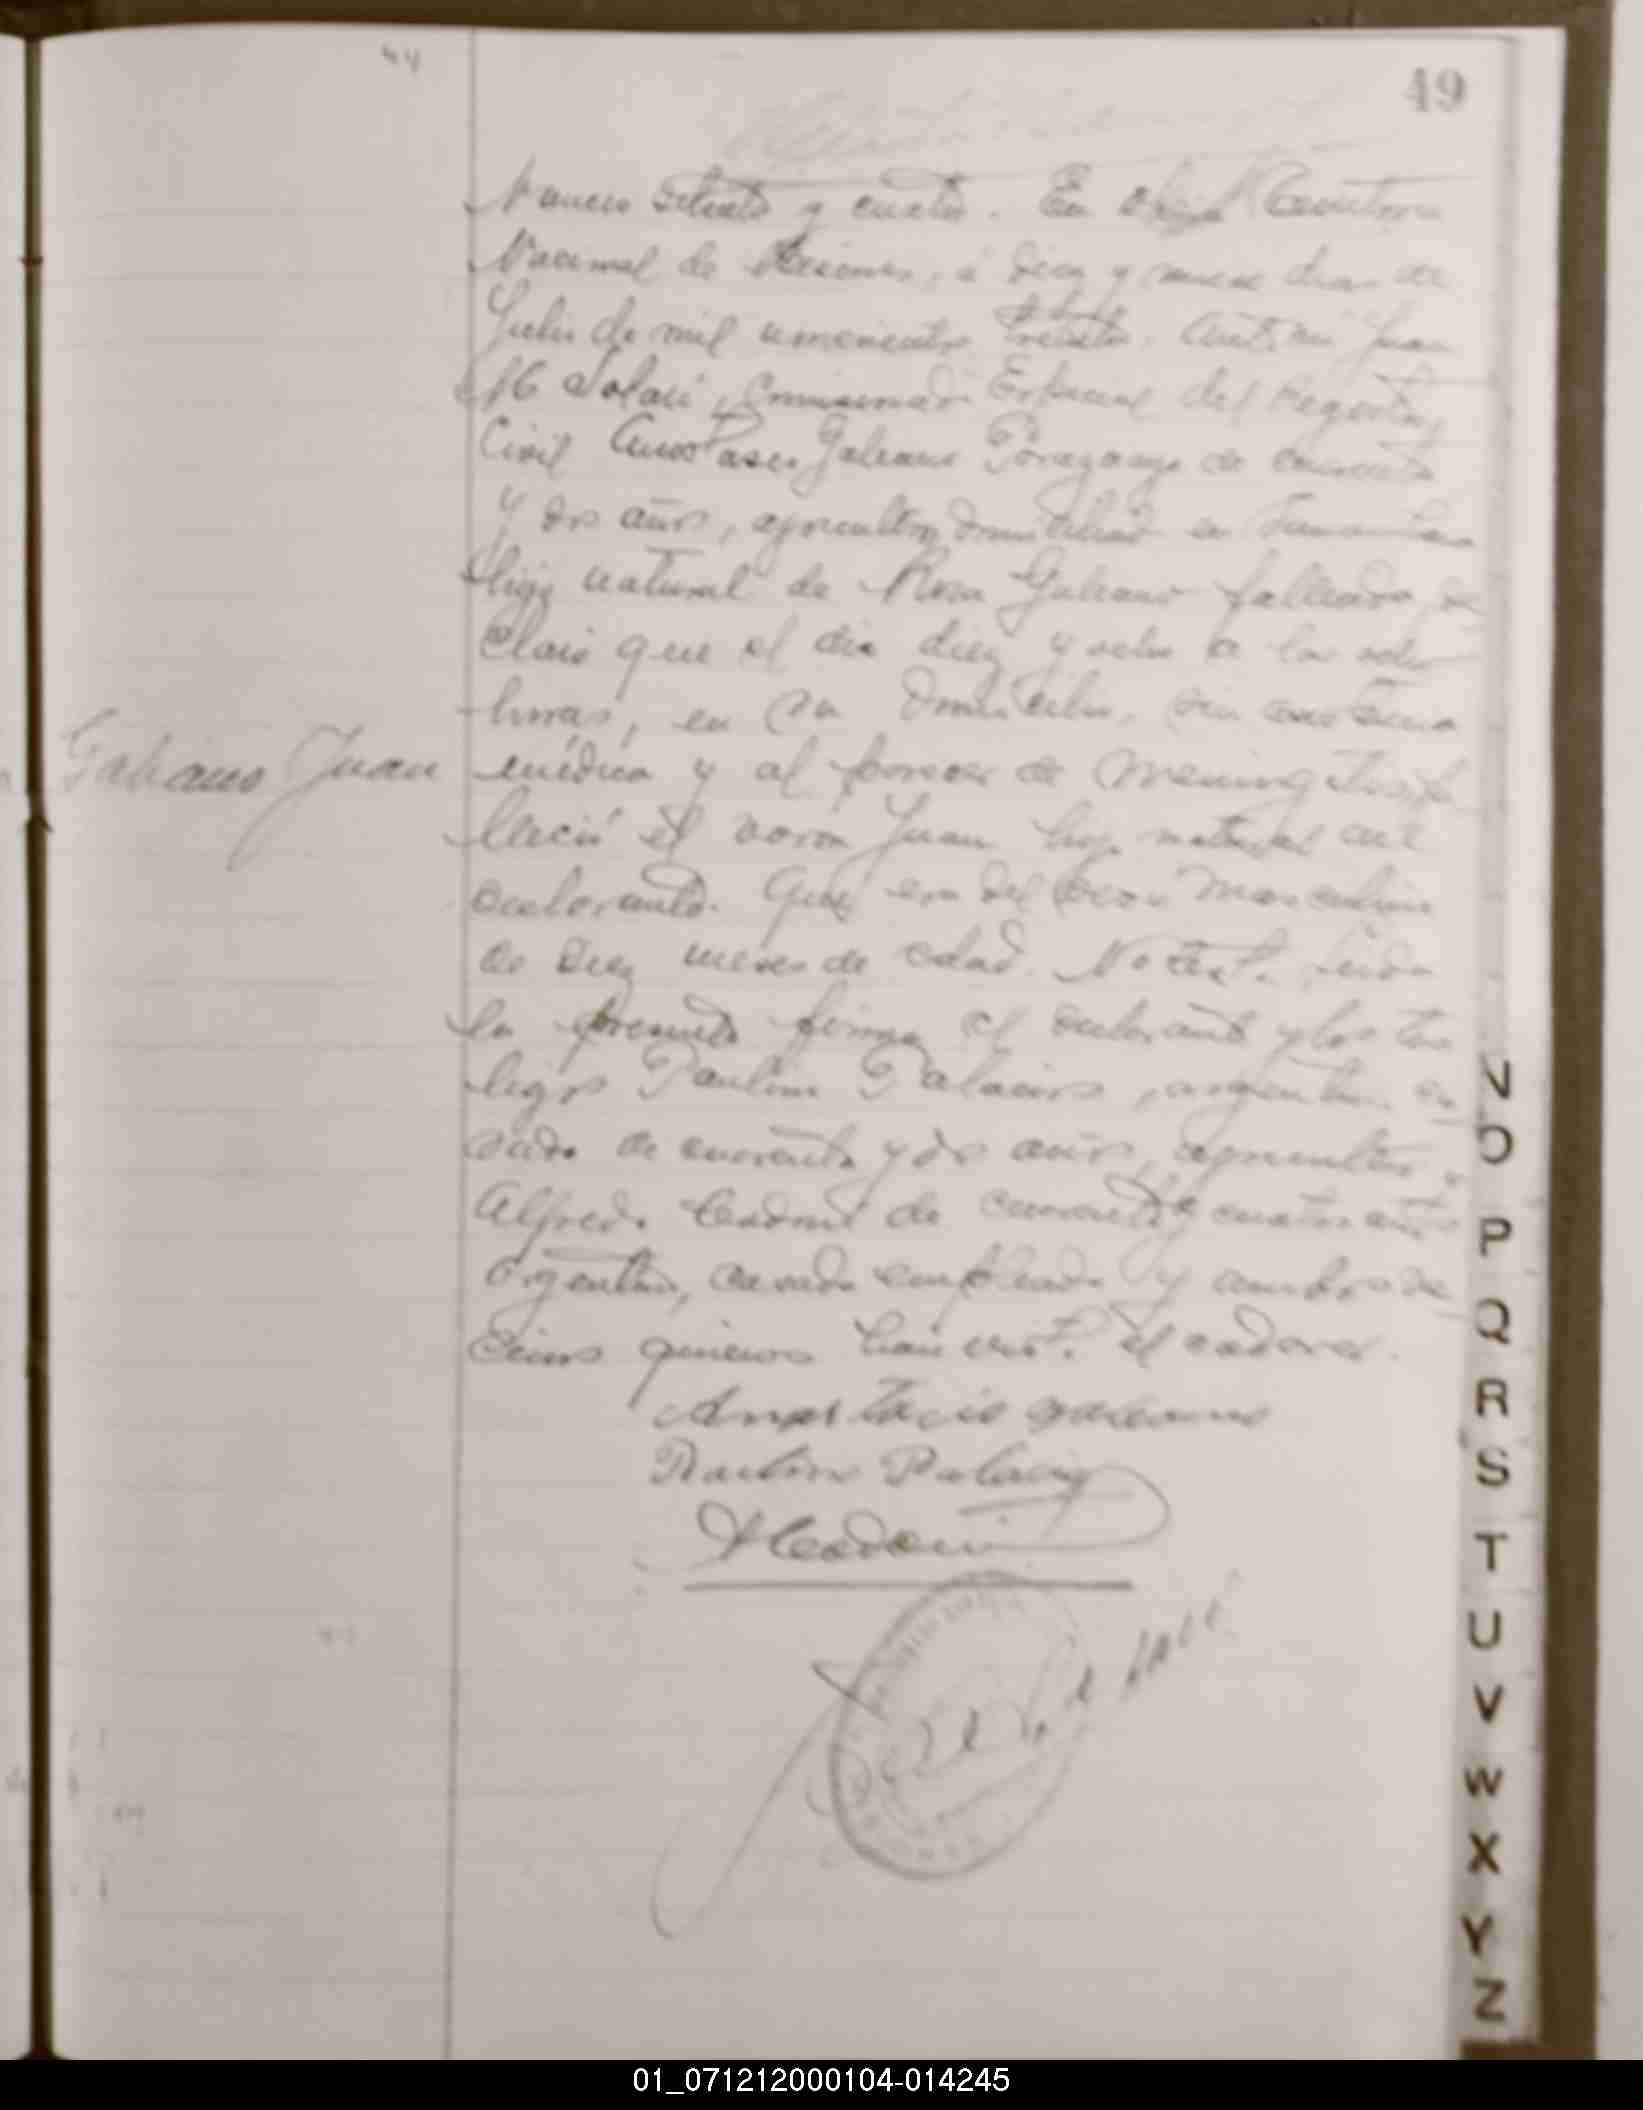 44
49
Numero setenta y cuatro. En
Nacional de Misiones, á diez y nueve dias de
Julio de mil novecientos treinta. Ante mi Juan
M Solari, Comisionado Especial del Registro
Civil Anastasio Galeano Paraguayo de cuarenta
y dos años, agricultor, domiciliado en
hijo natural de Rosa Galeano fallecida, de
claró que el dia diez y ocho a las ocho
horas, en su domicilio, sin asistencia
Galeano Juan
médica y al parecer de Meningitis, fa
lleció el varon Juan hijo natural del
declarante. Que era del sexo masculino
de diez meses de edad. No testó. Leida
la presente firma el declarante y los tes
tigos Paulino Palacios, argentino, ca
sado de cuarenta y dos años, agricultor y
Alfredo Cadoni de cuarenta y cuatro años
Argentino, casado empleado y ambos ve
cinos quienes han visto el cadaver.
Anastacio Galeano
Paulino Palacios
ACadoni
N
O
P
Q
R
S
T
U
V
W
X
Y
Z
01_071212000104-014245